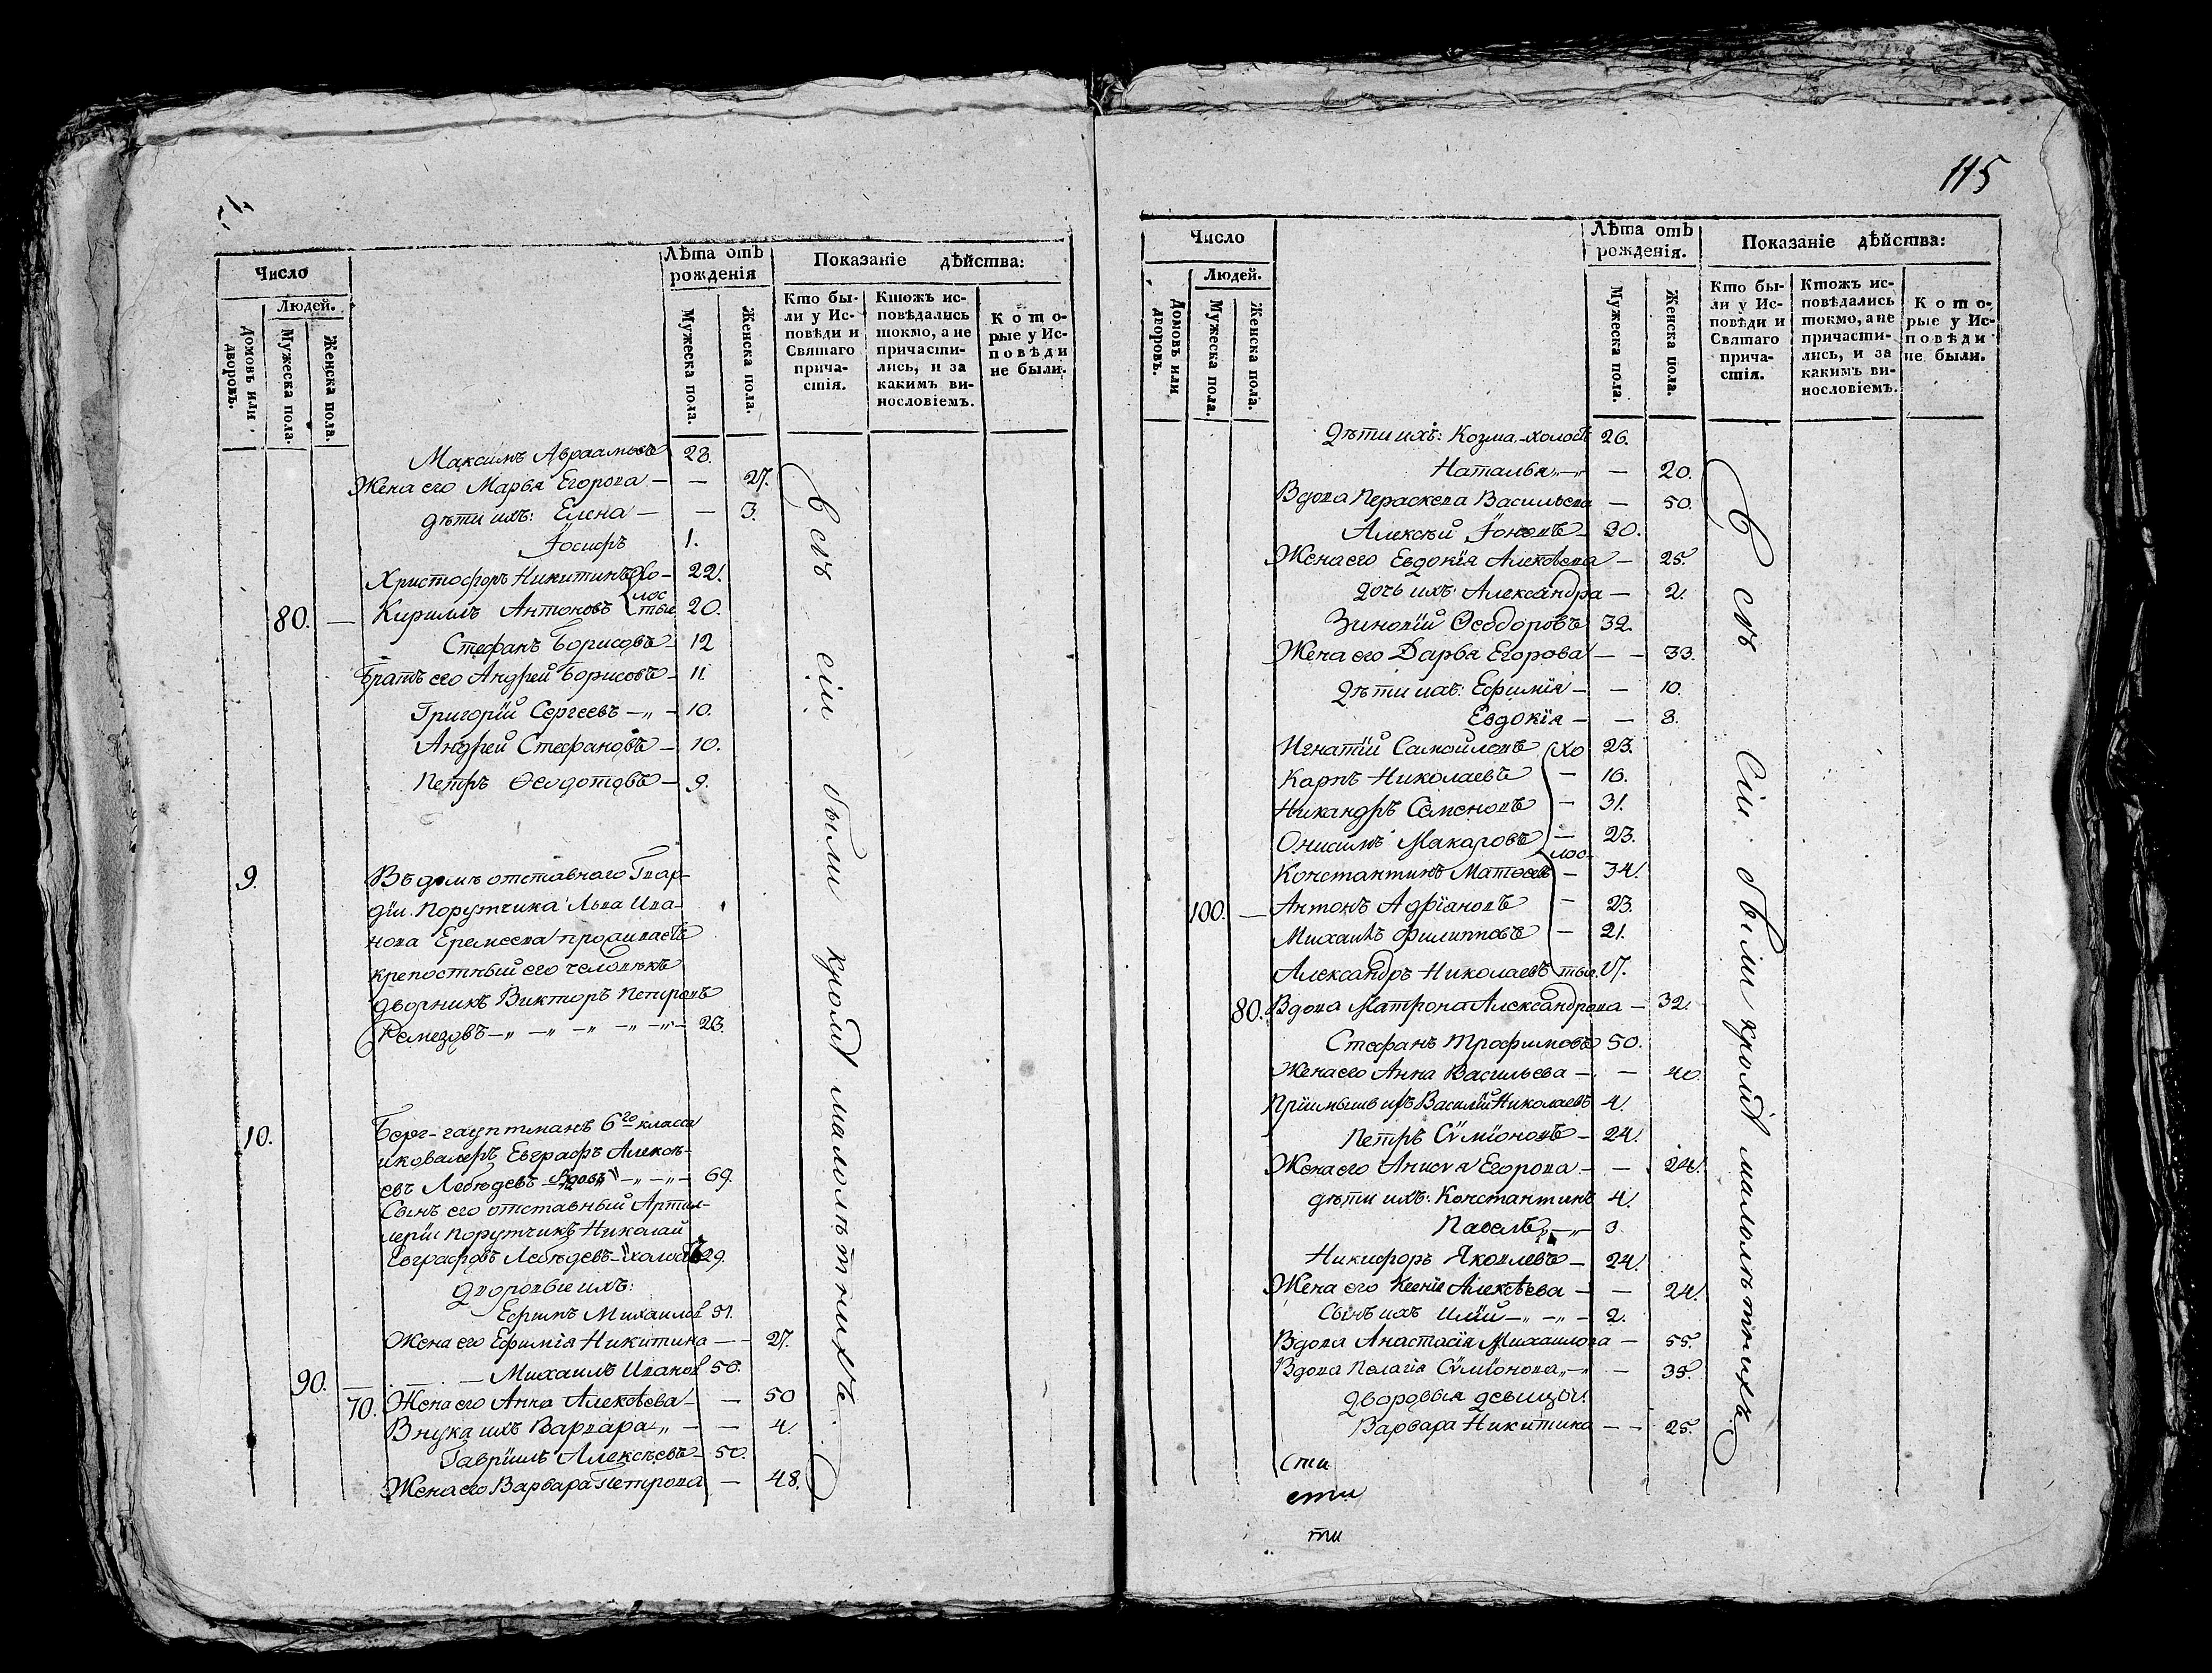 Число
Людей.
Домовъ или дворовъ.
Мужеска пола.
Женска пола.
Лѣта отъ рожденія
Мужеска пола.
Женска пола.
Показаніе дѣйства:
Кто бы-
ли у Ис-
повѣди и
Святаго
прича-
стія.
Ктожъ ис-
повѣдались
токмо, а не
причасти-
лись, и за
какимъ ви-
нословіемъ.
Кото-
рые у Ис-
повѣди
не были.
Максимъ Авраамовъ 28.
Жена его Марья Егорова — — 27.
дѣти ихъ: Елена — — 3.
Іосифъ 1.
Христофоръ Никитинъ хо- 22.
лос
80. — Кириллъ Антоновъ тые 20.
Стефанъ Борисовъ — 12
Братъ его Андрей Борисовъ — 11.
Григорій Сергеевъ — „ — 10.
Андрей Стефановъ — 10.
Петръ Ѳеодотовъ — 9.
9. Въ домѣ отставнаго Гвар-
діи Порутчика Льва Ива-
нова Еремеева проживаетъ
крепостный его человѣкъ
дворникъ Викторъ Петровъ
Ремезовъ — „ — „ — „ — „ — „ — 23.
10. Берг-гауптманъ 6го класса
и кавалеръ Евграфъ Алексѣ-
евъ Лебѣдевъ — вдовъ „ — „ — „ — 69.
Сынъ его отставный Артил-
леріи Порутчикъ Николай
Евграфовъ Лебѣдевъ — холостъ 29.
Дворовые ихъ:
Ефимъ Михаиловъ 31.
Жена его Ефимія Никитина — — 27.
90. — Михаилъ Ивановъ 50.
70. Жена его Анна Алексѣева — — 50
Внука ихъ Варвара „ — — 4.
Гавріилъ Алексѣевъ — 50.
Жена его Варвара Петрова — 48.
Всѣ сіи были кромѣ малолѣтнихъ.
115
Число
Людей.
Домовъ или дворовъ.
Мужеска пола.
Женска пола.
Лѣта отъ рожденія.
Мужеска пола.
Женска пола.
Показаніе дѣйства:
Кто бы-
ли у Ис-
повѣди и
Святаго
прича-
стія.
Ктожъ ис-
повѣдались
токмо, а не
причасти-
лись, и за
какимъ ви-
нословіемъ.
Кото-
рые у Ис-
повѣди
не были.
дѣти ихъ: Козма — холостъ 26.
Наталья „ — „ — 20.
Вдова Пераскева Васильева — 50.
Алексѣй Іоновъ — 30.
Жена его Евдокія Алексѣева — 25.
дочь ихъ: Александра — 2.
Зиновій Ѳеодоровъ 32.
Жена его Дарья Егорова — — 33.
дѣти ихъ: Ефимія — — 10.
Евдокія — — 8.
Игнатій Самойловъ хо 23.
Карпъ Николаевъ — 16.
Никандръ Семеновъ — 31.
Онисимъ Макаровъ — 23.
лос-
Константинъ Матѳеевъ — 34.
100. — Антонъ Адріановъ — 23.
Михаилъ Филипповъ — 21.
Александръ Николаевъ тые. 17.
80. Вдова Матрона Александрова — 32.
Стефанъ Трофимовъ 50.
Жена его Анна Васильева — — 40.
Пріимышъ ихъ Василій Николаевъ 4.
Петръ Сѵміоновъ — 24.
Жена его Анисья Егорова — — 24.
дѣти ихъ: Константинъ 4.
Павелъ „ — „ — 3.
Никифоръ Яковлевъ — 24.
Жена его Ксенія Алексѣева — — 24.
Сынъ ихъ Илій — „ — „ — 2.
Вдова Анастасія Михаилова — 55.
Вдова Пелагія Сѵміонова „ — „ — 35.
Дворовыя девицы:
Варвара Никитина — — 25.
сти
сти
ти
Всѣ сіи были кромѣ малолѣтнихъ